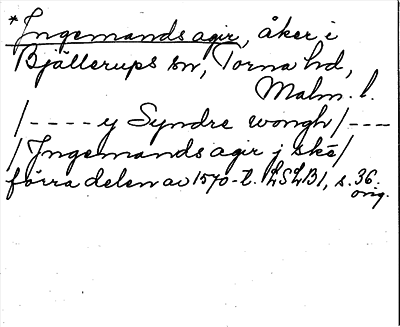 *Ingemands agir, åker i
Bjällerups sn, Torna hd,
Malm. l.
/---- y Syndre wongh/---
/Ingemands agir j skë/
förra delen av 1570-t. LSLB1, s. 36.
orig.